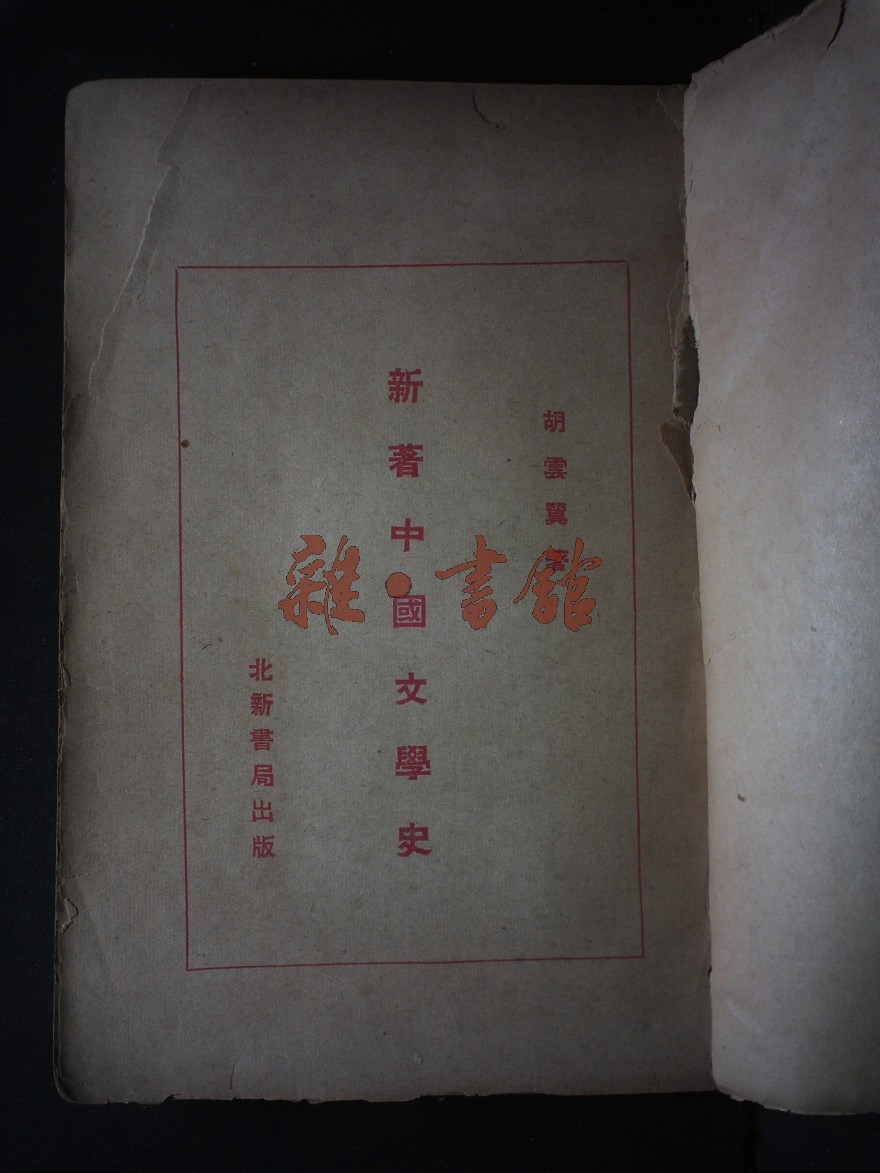 胡雲翼著
新著中國文學史
北新書局出版
雜·書館